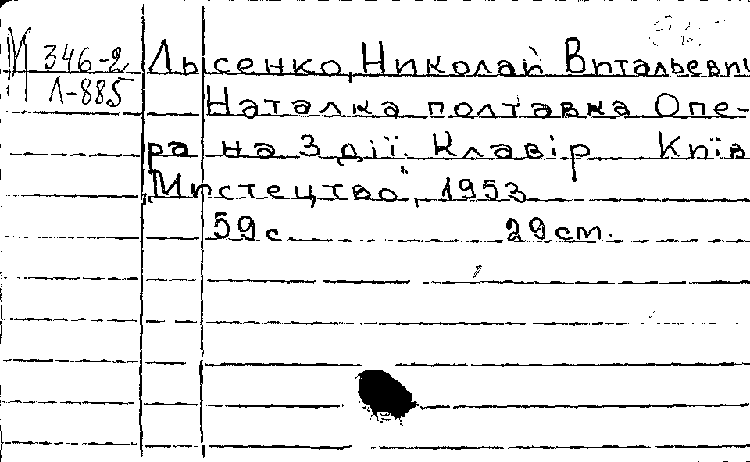 И 346-2
Л-885
Лысенко, Николай Витальевич
Наталка полтавка Опе-
ра на 3 дії. Клавір Київ
„Мистецтво", 1953
59 с. 29 см.